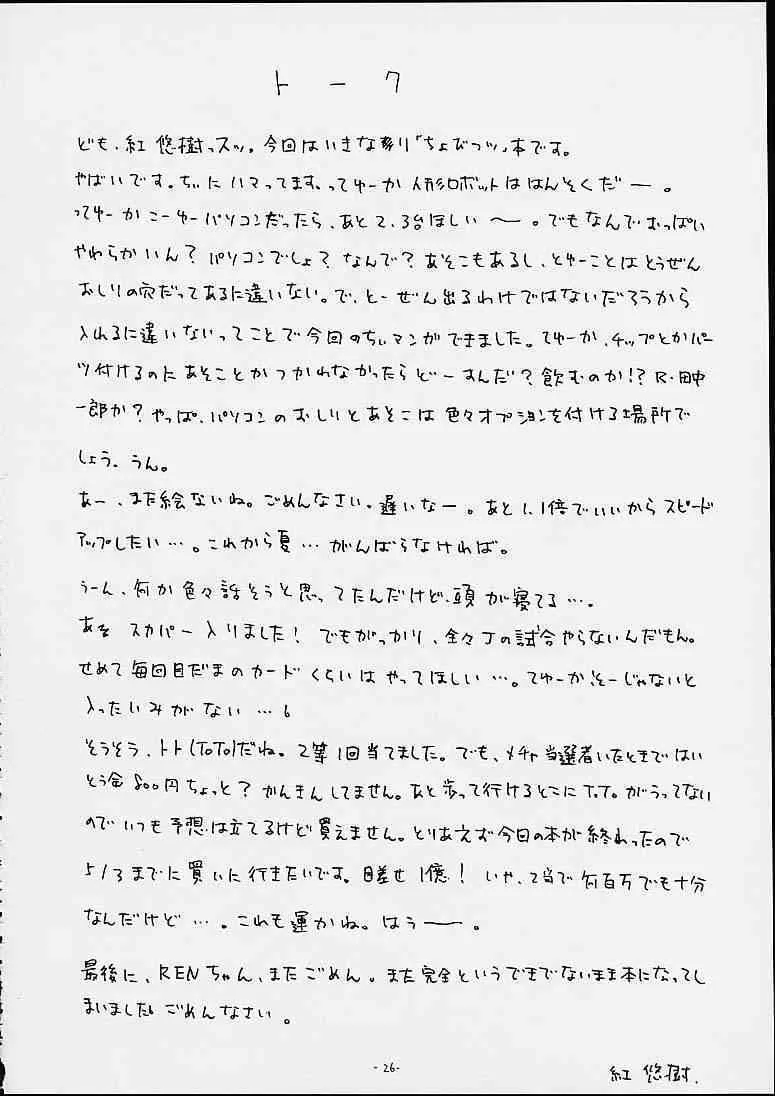 トーク
ども、紅 悠樹っスッ。今回はいきなり「ちょびっツ」本です。
やばいです。ちぃにハマってます、ってゆーか人形ロボットははんそくだー。
ってゆーかこーゆーパソコンだったら、あと2、3台ほしい〜。でもなんでおっぱい
やわらかいん?パソコンでしょ?なんで?あそこもあるし、とゆーことはとうぜん
おしりの穴だってあるに違いない。で、とーぜん出るわけではないだろうから
入れるに違いないってことで今回のちぃマンガできました。てゆーか、チップとかパー
ツ付けるのにあそことかつかわなかったらどーすんだ?飲むのか!?R・田中
一郎か?やっぱ、パソコンのおしりとあそこは色々オプションを付ける場所で
しょう、うん。
あー、また絵ないね。ごめんなさい。遅いなー。あと1.1倍でいいからスピード
アップしたい…。これから夏…がんばらなければ。
うーん、何か色々話そうと思ってたんだけど、頭が寝てる…。
あそ スカパー入りました!でもがっかり、全々J1の試合やらないんだもん。
せめて毎回目だまのカードくらいはやってほしい…。てゆーかそーじゃないと
入ったいみがない…。
そうそう、トト(ToTo)だね。2等1回当てました。でも、メチャ当選者いたときではい
とう金800円ちょっと?かんきんしてません。あと歩って行けるとこにT.T.がうってない
のでいつも予想は立てるけど買えません。とりあえず今回の本が終わったので
5/3までに買いに行きたいです。目差せ1億!いや、2当で何百万でも十分
なんだけど…。これも運かね。はぅー。
最後に、RENちゃん、またごめん。また完全というできでないまま本になってし
まいました。ごめんなさい。
-26-
紅 悠樹.